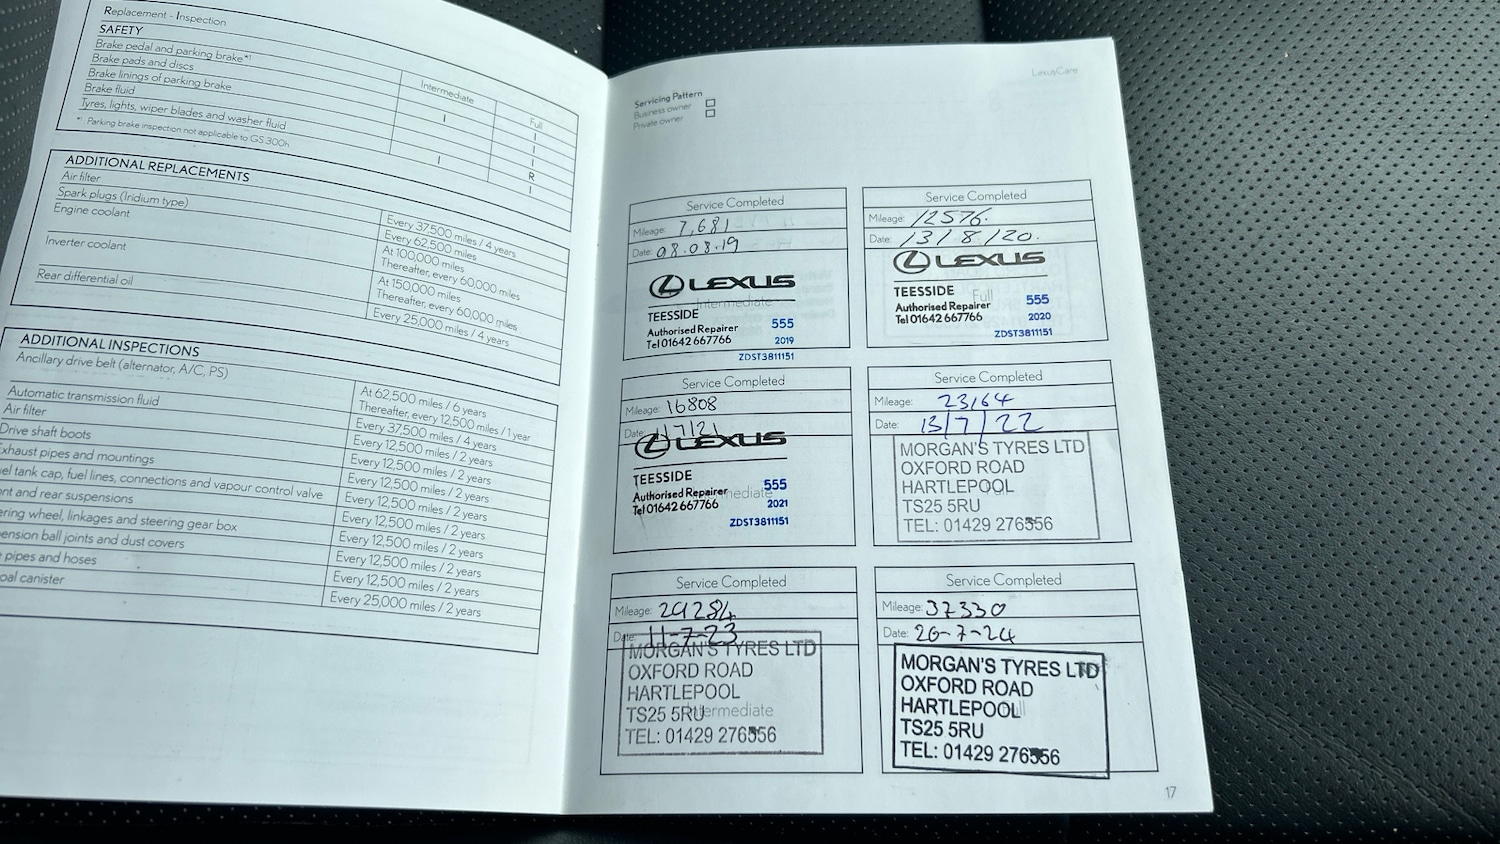 Replacement - Inspection
SAFETY
Intermediate Full
Brake pedal and parking brake*¹ I I
Brake pads and discs I
Brake linings of parking brake I
Brake fluid R
Tyres, lights, wiper blades and washer fluid I I
*¹ Parking brake inspection not applicable to GS 300h
ADDITIONAL REPLACEMENTS
Air filter Every 37,500 miles / 4 years
Spark plugs (Iridium type) Every 62,500 miles
Engine coolant At 100,000 miles
Thereafter, every 60,000 miles
Inverter coolant At 150,000 miles
Thereafter, every 60,000 miles
Rear differential oil Every 25,000 miles / 4 years
ADDITIONAL INSPECTIONS
Ancillary drive belt (alternator, A/C, PS) At 62,500 miles / 6 years
Thereafter, every 12,500 miles / 1 year
Automatic transmission fluid Every 37,500 miles / 4 years
Air filter Every 12,500 miles / 2 years
Drive shaft boots Every 12,500 miles / 2 years
xhaust pipes and mountings Every 12,500 miles / 2 years
el tank cap, fuel lines, connections and vapour control valve Every 12,500 miles / 2 years
nt and rear suspensions Every 12,500 miles / 2 years
ering wheel, linkages and steering gear box Every 12,500 miles / 2 years
ension ball joints and dust covers Every 12,500 miles / 2 years
pipes and hoses Every 12,500 miles / 2 years
oal canister Every 25,000 miles / 2 years
LexusCare
Servicing Pattern
Business owner
Private owner
Service Completed
Mileage: 7,681
Date: 08.08.19
LEXUS
Intermediate
TEESSIDE
Authorised Repairer 555
Tel 01642 667766 2019
ZDST3811151
Service Completed
Mileage: 12576.
Date: 13/8/20.
LEXUS
TEESSIDE Full
Authorised Repairer 555
Tel 01642 667766 2020
ZDST3811151
Service Completed
Mileage: 16808
Date: 1/7/21
LEXUS
TEESSIDE
Authorised Repairer mediate 555
Tel 01642 667766 2021
ZDST3811151
Service Completed
Mileage: 23164
Date: 13/7/22
MORGAN'S TYRES LTD
OXFORD ROAD
HARTLEPOOL Full
TS25 5RU
TEL: 01429 276556
Service Completed
Mileage: 29284
Date: 11-7-23
MORGAN'S TYRES LTD
OXFORD ROAD
HARTLEPOOL
TS25 5RU Intermediate
TEL: 01429 276556
Service Completed
Mileage: 37330
Date: 26-7-24
MORGAN'S TYRES LTD
OXFORD ROAD
HARTLEPOOL Full
TS25 5RU
TEL: 01429 276556
17